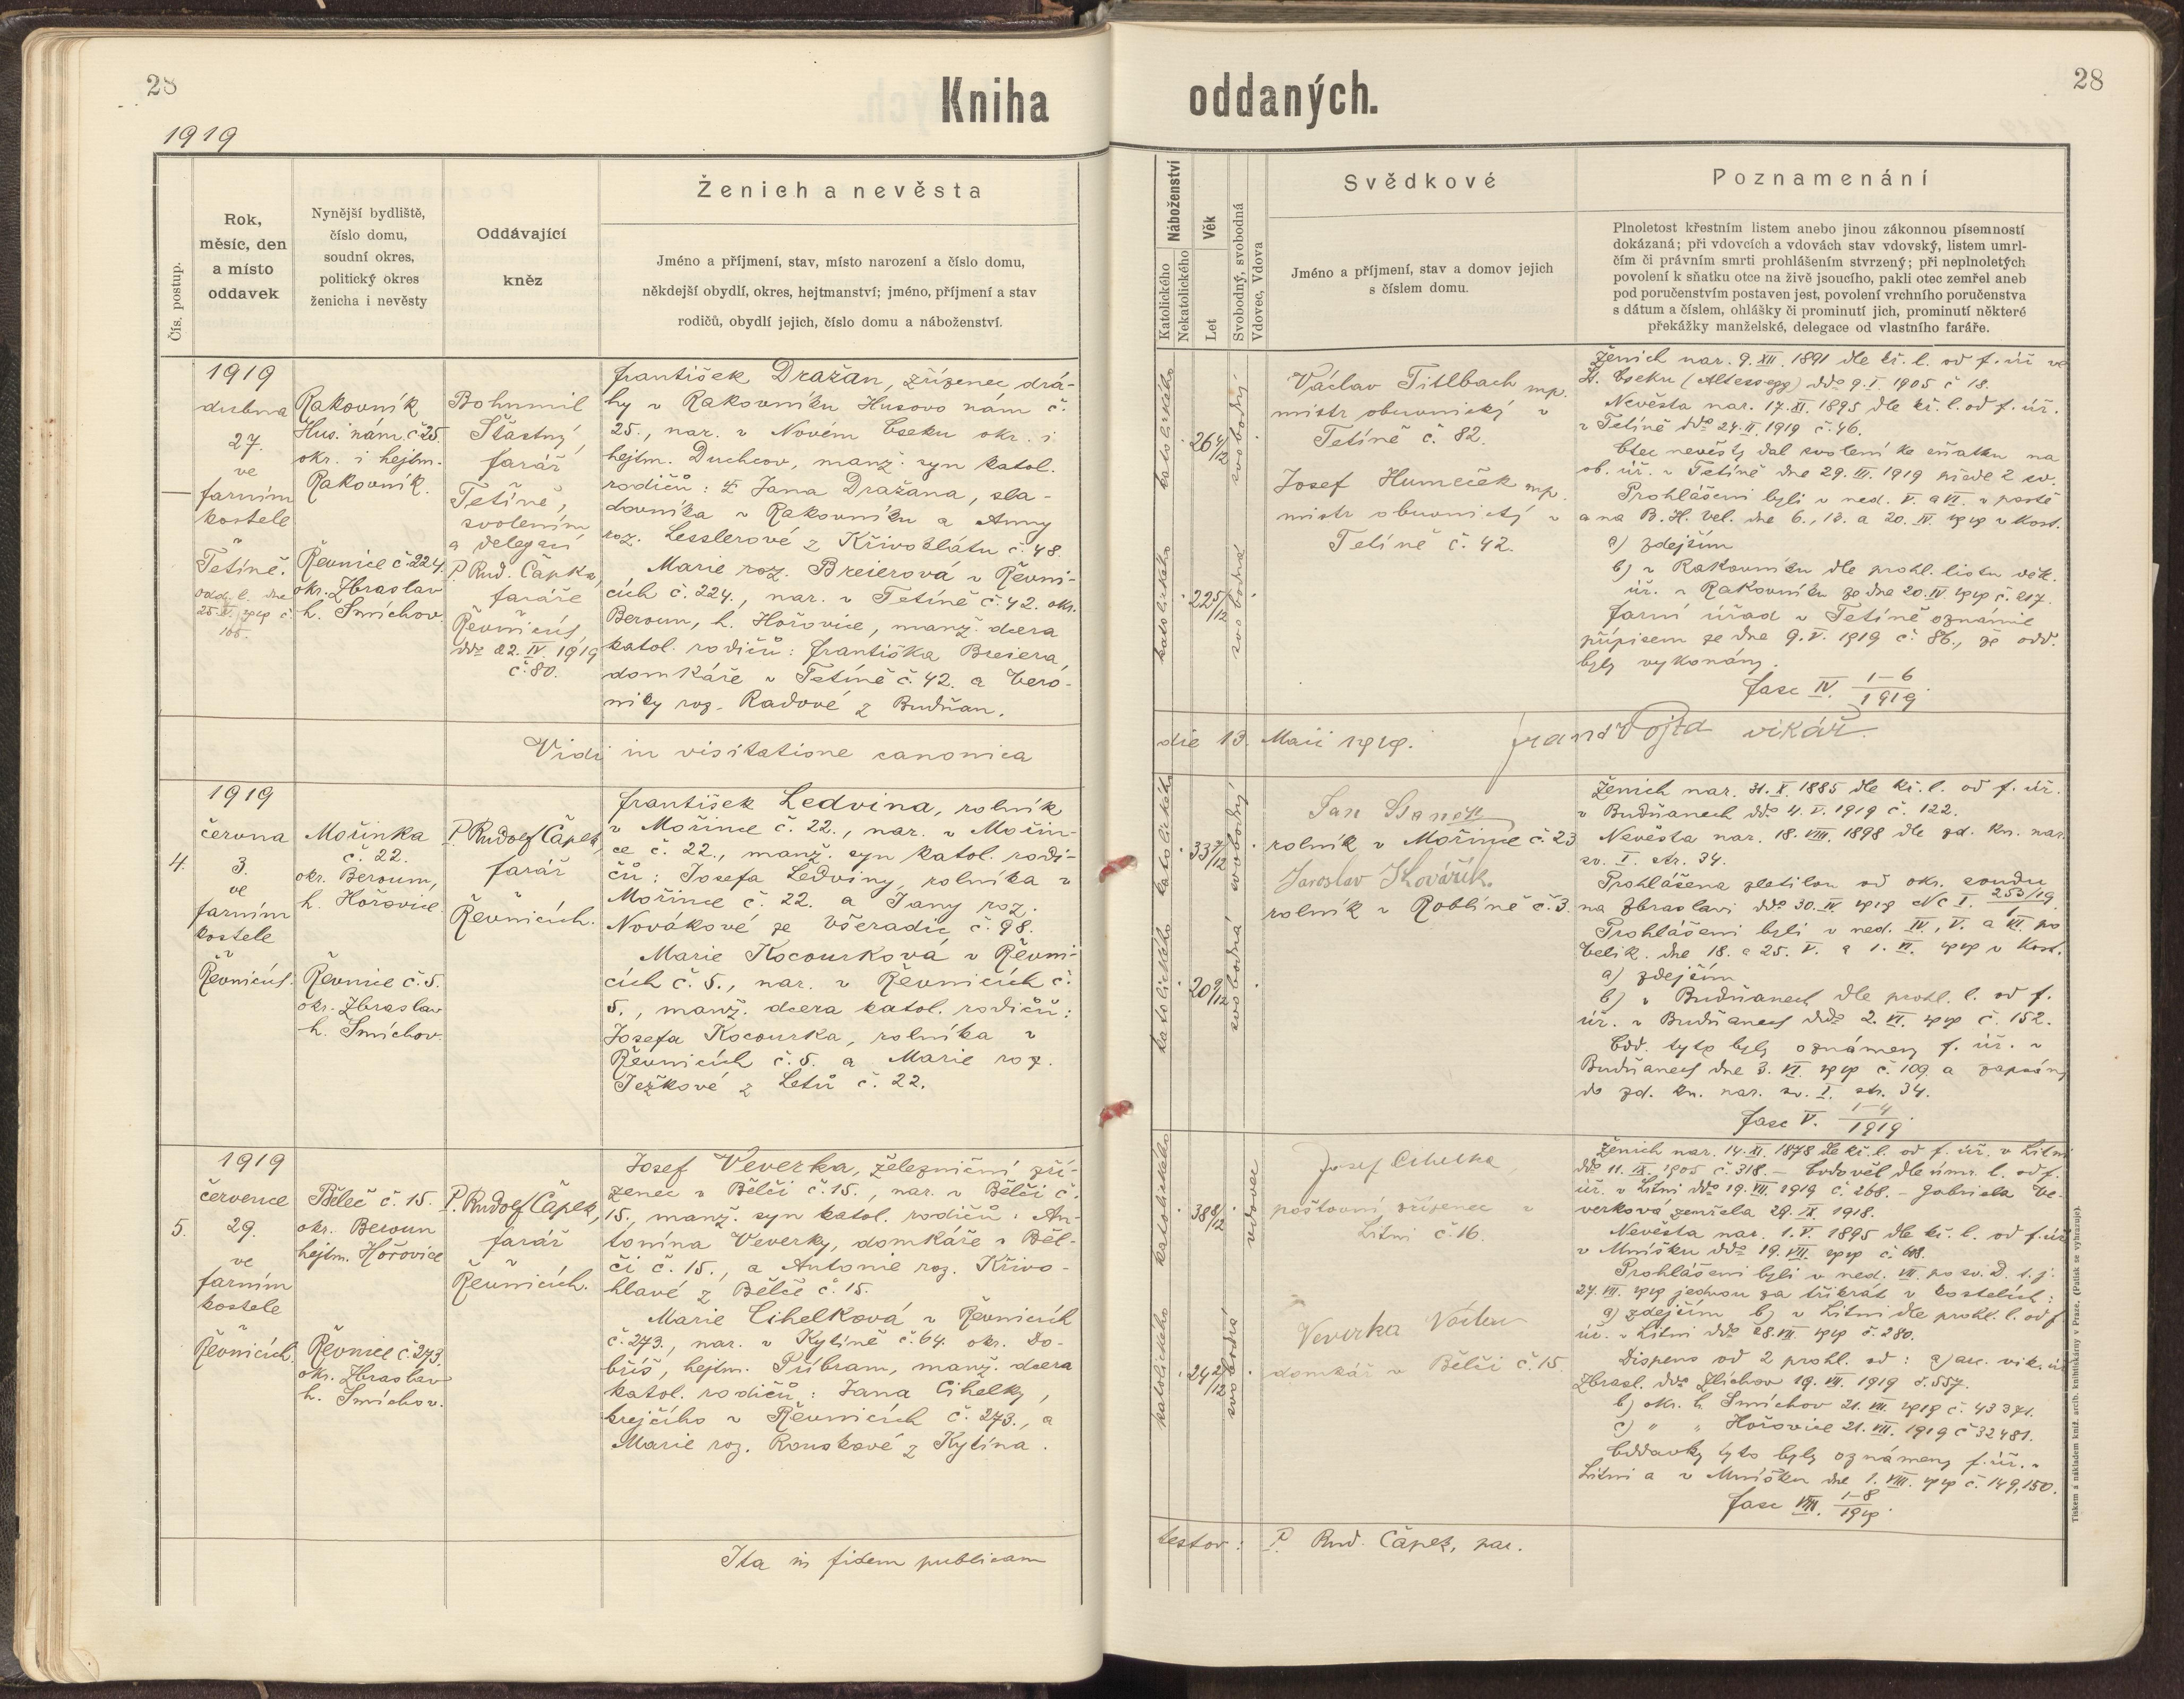 28
Kniha
oddaných.
28
1919
Čís. postup.
Rok,
měsíc, den
a místo
oddavek
Nynější bydliště,
číslo domu,
soudní okres,
politický okres
ženicha i nevěsty
Oddávající
kněz
Ženich a nevěsta
Jméno a příjmení, stav, místo narození a číslo domu,
někdejší obydlí, okres, hejtmanství; jméno, příjmení a stav
rodičů, obydlí jejich, číslo domu a náboženství.
Náboženství
Katolického
Nekatolického
Věk
Let
Svobodný, svobodná
Vdovec, Vdova
Svědkové
Jméno a příjmení, stav a domov jejich
s číslem domu.
Poznamenání
Plnoletost křestním listem anebo jinou zákonnou písemností
dokázaná; při vdovcích a vdovách stav vdovský, listem umrl-
čím či právním smrti prohlášením stvrzený; při neplnoletých
povolení k sňatku otce na živě jsoucího, pakli otec zemřel aneb
pod poručenstvím postaven jest, povolení vrchního poručenstva
s dátum a číslem, ohlášky či prominutí jich, prominutí některé
překážky manželské, delegace od vlastního faráře.
1919
dubna
27.
ve
farním
kostele
v
Tetíně.
Odd. l. dne
Rakovník
Hus. nám. č 25.
okr. i hejtm.
Rakovník.
Řevnice č. 224.
okr. Zbraslav
h. Smíchov.
Bohumil
Šťastný,
farář
v
Tetíně,
svolením
a delegací
P. Rud. Čapka,
faráře
v
Řevnicích
ddo 22. IV. 1919
č. 80.
František Dražan, zřízenec drá-
hy v Rakovníku Husovo nám č.
25., nar. v Novém Oseku okr. i
hejtm. Duchcov, manž. syn katol.
rodičů: † Jana Dražana, sla-
dovníka v Rakovníku a Anny
roz. Lesslerové z Křivoklátu č. 48.
Marie roz. Breierová v Řevni-
cích č. 224., nar. v Tetíně č. 42. okr.
Beroun, h. Hořovice, manž. dcera
katol. rodičů: Františka Breiera,
domkáře v Tetíně č. 42. a Vero-
niky roz. Radové z Budňan.
katolického
26 4/12
svobodný
katolického
22 5/12
svobodná
Václav Titlbach mp.
mistr obuvnický v
Tetíně č. 82.
Josef Humeček mp.
mistr obuvnický v
Tetíně č. 42.
Ženich nar. 9. XII. 1891 dle kř. l. od f. úř ve
N. Oseku (Altossegg) ddo 9. I. 1905 č 18.
Nevěsta nar. 17. XI. 1895 dle kř. l. od f. úř.
v Tetíně ddo 24. II. 1919 č. 46.
Otec nevěsty dal svolení ke sňatku na
ob. úř. v Tetíně dne 29. III. 1919 před 2 sv.
Prohlášeni byli v ned. V. a VI. v postě
a na B. H. Vel. dne 6., 13. a 20. IV. 1919 v kost.
a) zdejším
b) v Rakovníku dle prohl. listu děk.
úř. v Rakovníku ze dne 20. IV 1919 č. 217.
Farní úřad v Tetíně oznámil
přípisem ze dne 9. V. 1919 č. 86., že odd.
byly vykonány.
Fasc IV. 1-6/1919.
Vidi in visitatione canonica
die 13. Maii 1919.
Frant Vojta vikář.
4.
1919
června
3.
ve
farním
kostele
v
Řevnicích.
Mořinka
č. 22.
okr. Beroun,
h. Hořovice.
Řevnice č. 5.
okr. Zbraslav
h. Smíchov.
P. Rudolf Čapek,
farář
v
Řevnicích.
František Ledvina, rolník
v Mořince č. 22., nar. v Mořin-
ce č. 22., manž. syn katol. rodi-
čů: Josefa Ledviny, rolníka v
Mořince č. 22. a Jany roz.
Novákové ze Všeradic č. 98.
Marie Kocourková v Řevni-
cích č. 5., nar. v Řevnicích č.
5., manž. dcera katol. rodičů:
Josefa Kocourka, rolníka v
Řevnicích č. 5. a Marie roz.
Ježkové z Letů č. 22.
katolického
33 7/12
svobodný
katolického
20 9/12
svobodná
Jan
rolník v Mořince č. 23
Jaroslav Kovářík.
rolník v Roblíně č. 3.
Ženich nar. 31. X. 1885 dle kř. l. od f. úř.
v Budňanech ddo 4. V. 1919 č. 122.
Nevěsta nar. 18. VIII. 1898 dle zd. kn. nar.
sv. I. str. 34.
Prohlášena zletilou od okr. soudu
na Zbraslavi ddo 30. IV 1919 Nc I. 253/19
Prohlášeni byli v ned. IV., V. a VI. po
Velik. dne 18. a 25. V. a 1. VI. 1919 v kost.
a) zdejším
b) v Budňanech dle prohl. l. od f.
úř. v Budňanech ddo 2. VI. 1919 č. 152.
Odd. tyto byly oznámeny f. úř. v
Budňanech dne 3. VI. 1919 č. 109. a zapsány
do zd. kn. nar. sv. I. str. 34.
Fasc V. 1-4/1919.
5.
1919
července
29.
ve
farním
kostele
v
Řevnicích.
Běleč č. 15.
okr. Beroun
hejtm. Hořovice
Řevnice č. 273.
okr. Zbraslav
h. Smíchov.
P. Rudolf Čapek,
farář
v
Řevnicích.
Josef Veverka, železniční zří-
zenec v Bělči č. 15., nar. v Bělči č.
15., manž. syn katol. rodičů: An-
tonína Veverky, domkáře v Běl-
či č. 15., a Antonie roz. Křivo-
hlavé z Bělče č. 15.
Marie Cihelková v Řevnicích
č. 273., nar. v Kytíně č. 64. okr. Do-
bříš, hejtm. Příbram, manž. dcera
katol. rodičů: Jana Cihelky,
krejčího v Řevnicích č. 273., a
Marie roz. Rouskové z Kytína.
katolického
38 8/12
vdovec
katolického
24 2/12
svobodná
Josef Cihelka,
poštovní zřízenec v
Litni č. 16.
Veverka Václav
domkář v Bělči č. 15.
Ženich nar. 14. XI. 1878 dle kř. l. od f. úř. v Litni
ddo 11. IX. 1905 č. 318. – Ovdověl dle úmr. l. od f.
úř. v Litni ddo 19. VII. 1919 č. 268. – Gabriela Ve-
verková zemřela 29. IX. 1918.
Nevěsta nar. 1. V. 1895 dle kř. l. od f. úř
v Mníšku ddo 19. VII. 1919 č.
Prohlášeni byli v ned. VII. po sv. D. t. j.
27. VII. 1919 jednou za třikrát v kostelích:
a) zdejším b) v Litni dle prohl. l. od f
úř. v Litni ddo 28. VII. 1919 č. 280.
Dispens od 2 prohl. od: a) arc. vik. úř
Zbrasl. ddo Zlíchov 19. VII. 1919 č. 557.
b) okr. h. Smíchov 21. VII. 1919 č. 43371.
c) " " Hořovice 21. VII. 1919 č 32481.
Oddavky tyto byly oznámeny f. úř. v
Litni a v Mníšku dne 1. VIII. 1919 č. 149, 150.
Fasc VIII. 1-8/1919.
Ita in fidem publicam
testor: P. Rud. Čapek, par.
Tiskem a nákladem kníž. arcib. knihtiskárny v Praze. (Patisk se vyhrazuje).